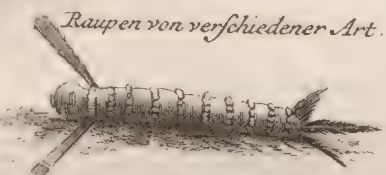 Raupen von verſchiedener Art.